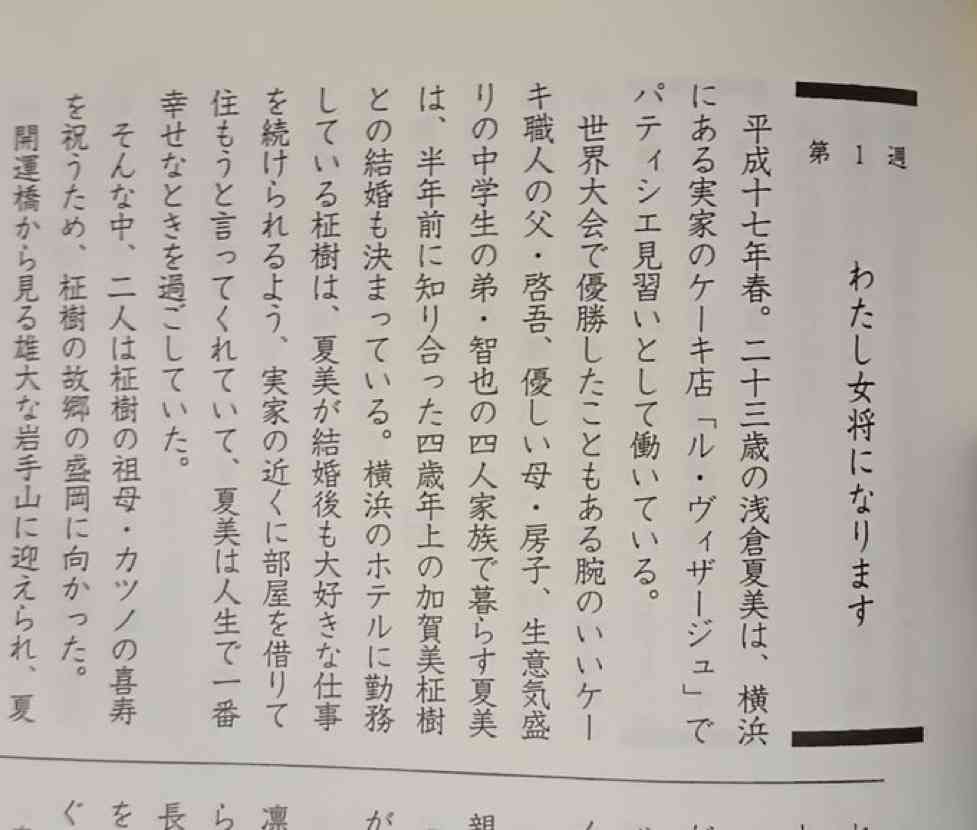 第1週
わたし女将になります
平成十七年春。二十三歳の浅倉夏美は、横浜
にある実家のケーキ店「ル・ヴィザージュ」で
パティシエ見習いとして働いている。
世界大会で優勝したこともある腕のいいケー
キ職人の父・啓吾、優しい母・房子、生意気盛
りの中学生の弟・智也の四人家族で暮らす夏美
は、半年前に知り合った四歳年上の加賀美柾樹
との結婚も決まっている。横浜のホテルに勤務
している柾樹は、夏美が結婚後も大好きな仕事
を続けられるよう、実家の近くに部屋を借りて
住もうと言ってくれていて、夏美は人生で一番
幸せなときを過ごしていた。
そんな中、二人は柾樹の祖母・カツノの喜寿
を祝うため、柾樹の故郷の盛岡に向かった。
開運橋から見る雄大な岩手山に迎えられ、夏
親
が
凛
ら
長
を
ぐ